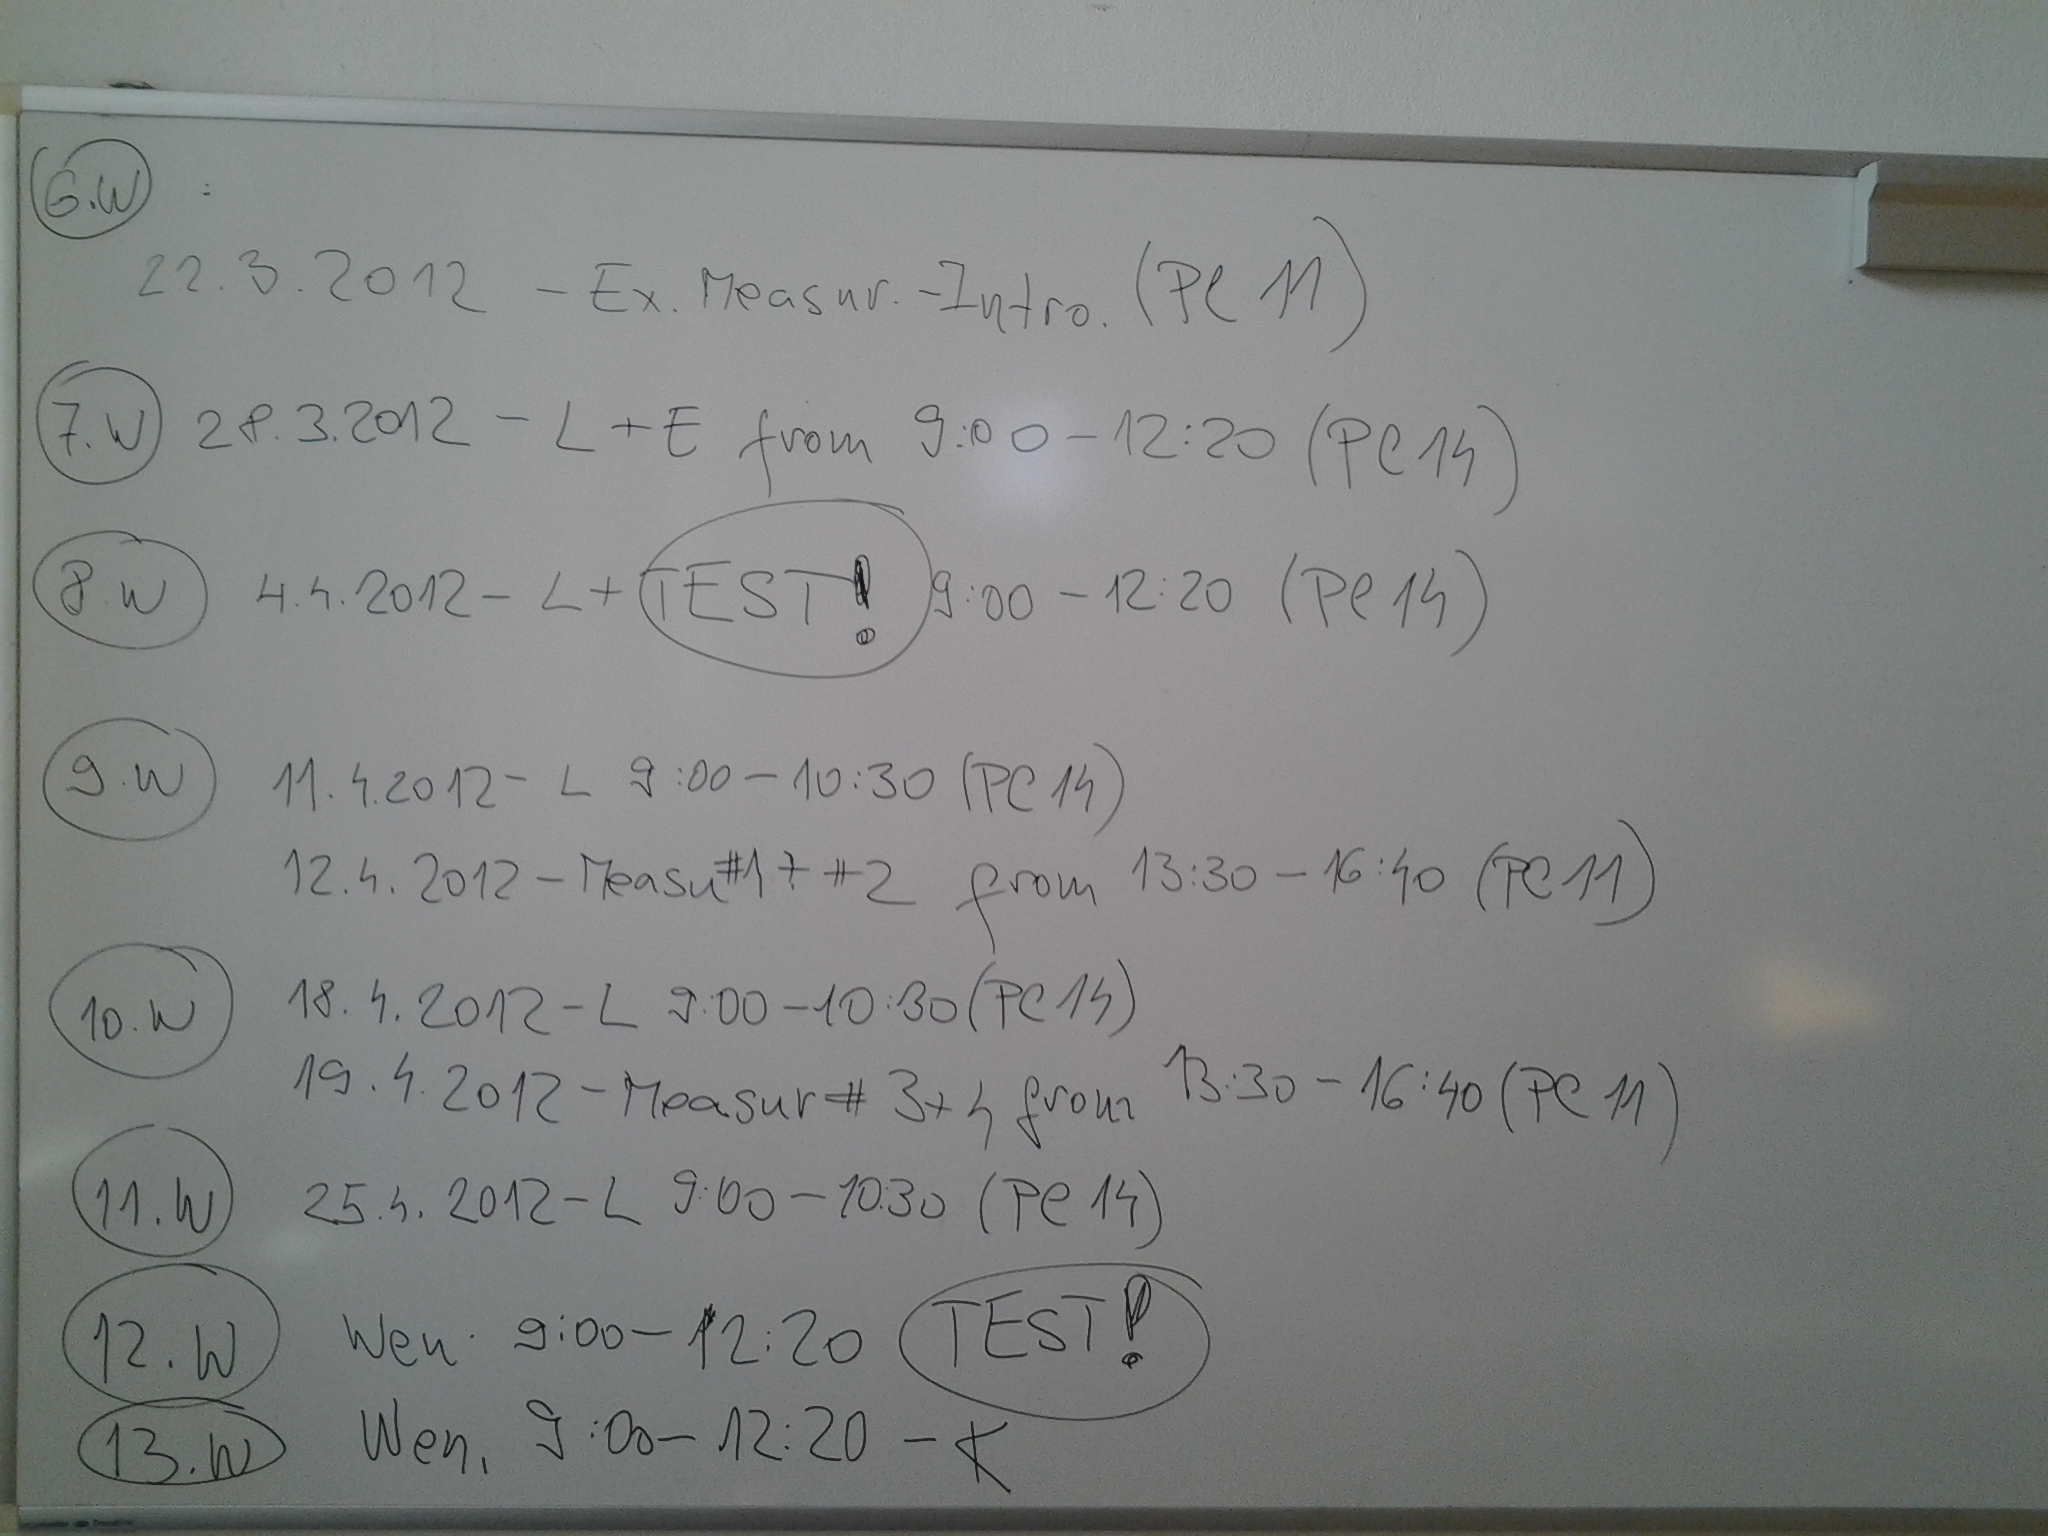 6.W :
22.3.2012 - Ex. Measur. - Intro. (PC 11)
7.W 28.3.2012 - L + E from 9:00 - 12:20 (PC 14)
8.W 4.4.2012 - L + TEST! 9:00 - 12:20 (PC 14)
9.W 11.4.2012 - L 9:00 - 10:30 (PC 14)
12.4.2012 - Measu #1 + #2 from 13:30 - 16:40 (PC 11)
10.W 18.4.2012 - L 9:00 - 10:30 (PC 14)
19.4.2012 - Measur # 3+4 from 13:30 - 16:40 (PC 11)
11.W 25.4.2012 - L 9:00 - 1030 (PC 14)
12.W Wen. 9:00 - 12:20 TEST!
13.W Wen. 9:00 - 12:20 - K